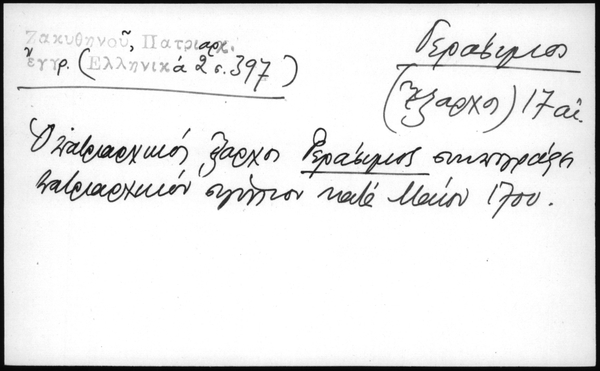 Ζακυθηνοῦ, Πατριαρχ.
ἔγγρ. (Ἑλληνικά 2 σ. 397)
Γεράσιμος
(ἔξαρχος) 17 αἰ.
Ὁ πατριαρχικός ἔξαρχος Γεράσιμος συνυπογράφει
πατριαρχικόν σιγίλλιον κατά Μάϊον 1700.